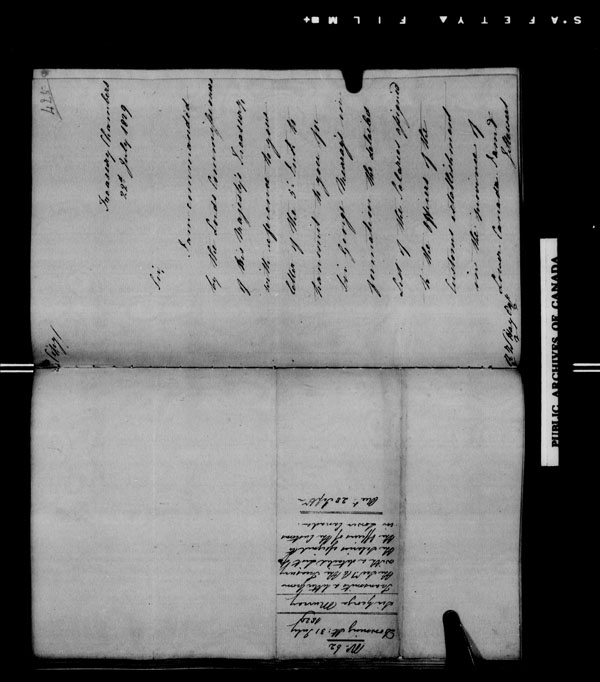 Treasury Chambers
28th July 1829
Sir,
I am commanded
by the Lords Commissioners
of His Majesty's Treasury,
with reference to your
letter of the 3d Inst. to
transmit to you for
Sir George Murray's in-
formation the detailed
List of the Salaries assigned
to the Officers of the
Customs establishment
in the Province of
Lower Canada. I am &c
R. W. Hay Esq
No. 62
Downing St: 31 July
1829
Sir George Murray
Transmits a letter from
the Treasury
with a detailed list of
the Salaries assigned to
the Officers of the Customs
in Lower Canada.
PUBLIC ARCHIVES OF CANADA
S'AFETY▲ FILM